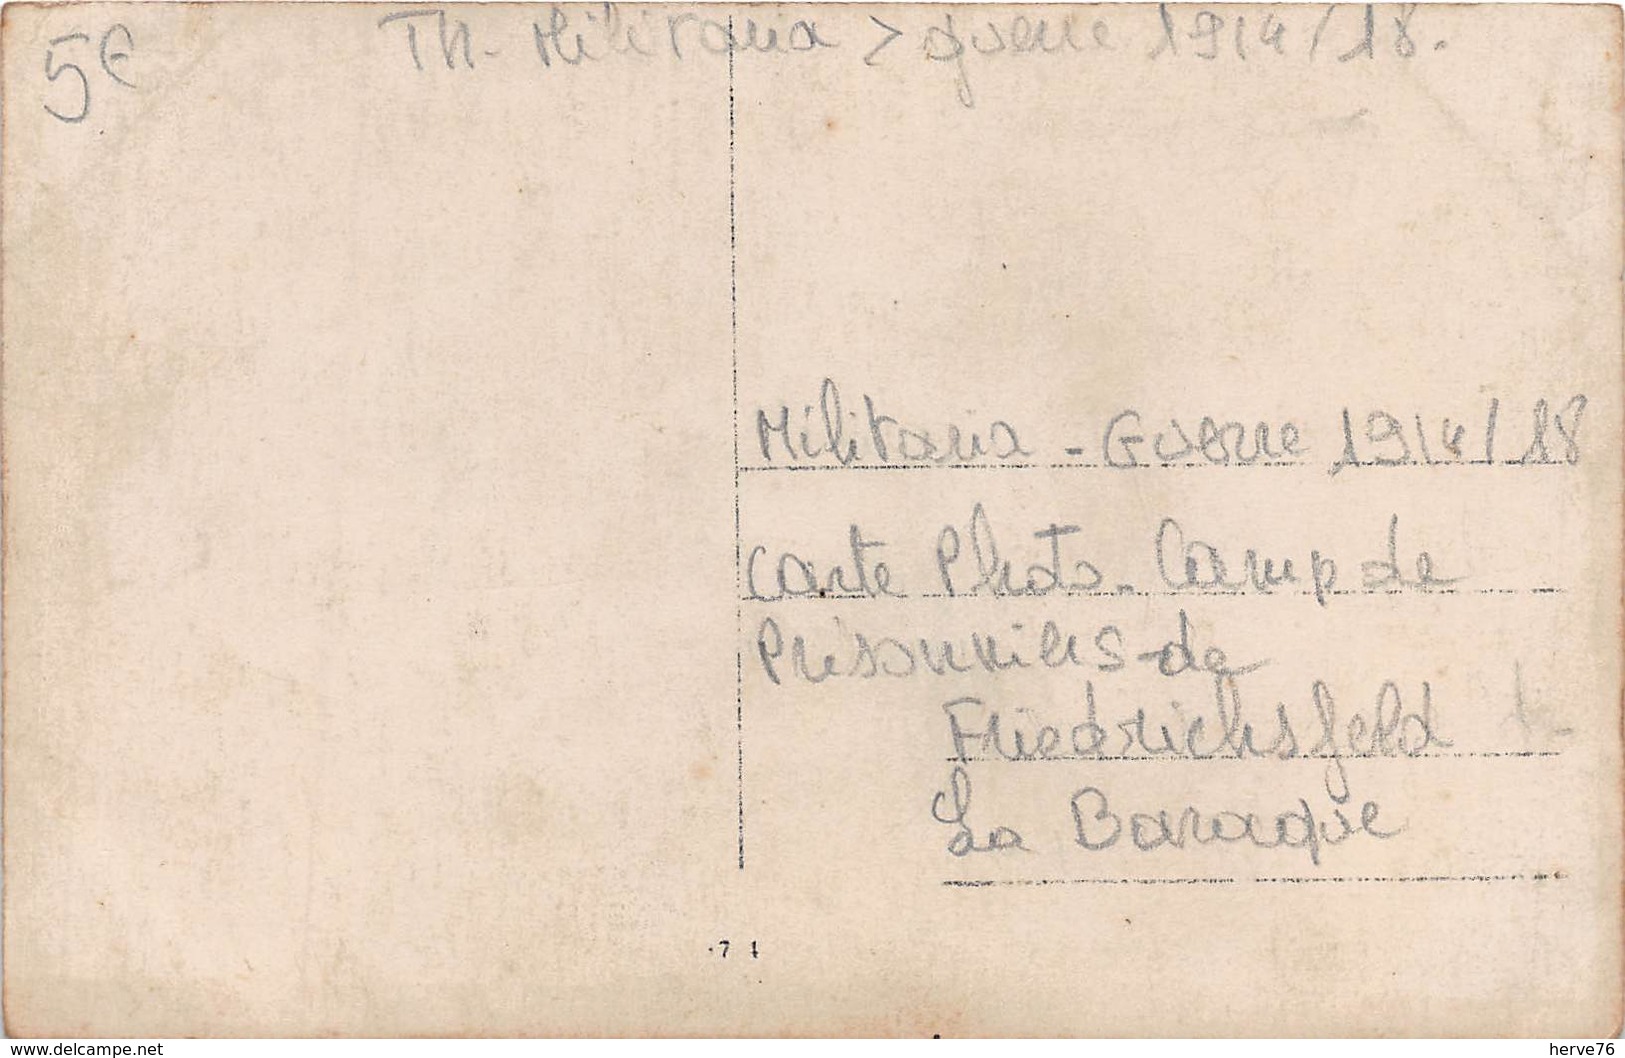 5€
Th- Militaria > guerre 1914/18.
Militaria - Guerre 1914/18
Carte Photo - Camp de
Prisonniers de
Friedrichsfeld
La Baraque
71
www.delcampe.net
herve76